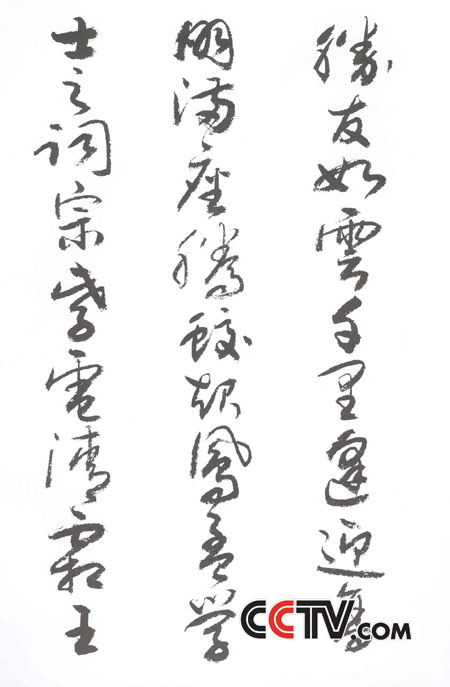 勝友如雲千里逢迎高
朋滿座騰蛟起鳳孟學
士之詞宗紫電清霜王
CCTV.com